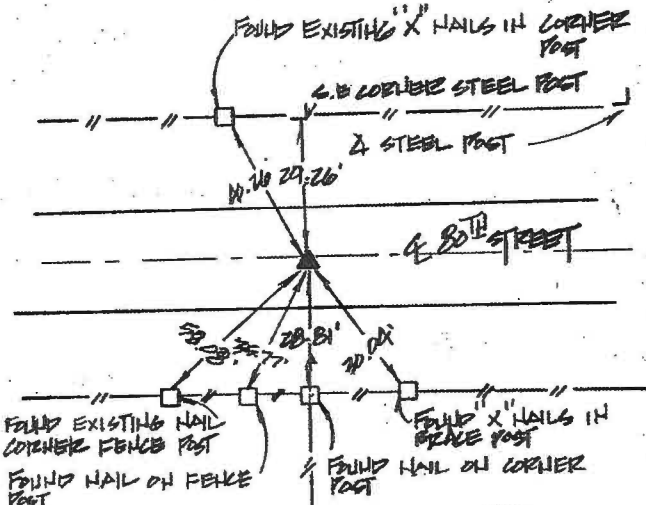 FOUND EXISTING "X" NAILS IN CORNER
POST
S.E CORNER STEEL POST
STEEL POST
29.26'
℄ 80TH STREET
28.81'
FOUND EXISTING NAIL
CORNER FENCE POST
FOUND NAIL ON FENCE
POST
FOUND NAIL ON CORNER
POST
FOUND "X" NAILS IN
BRACE POST